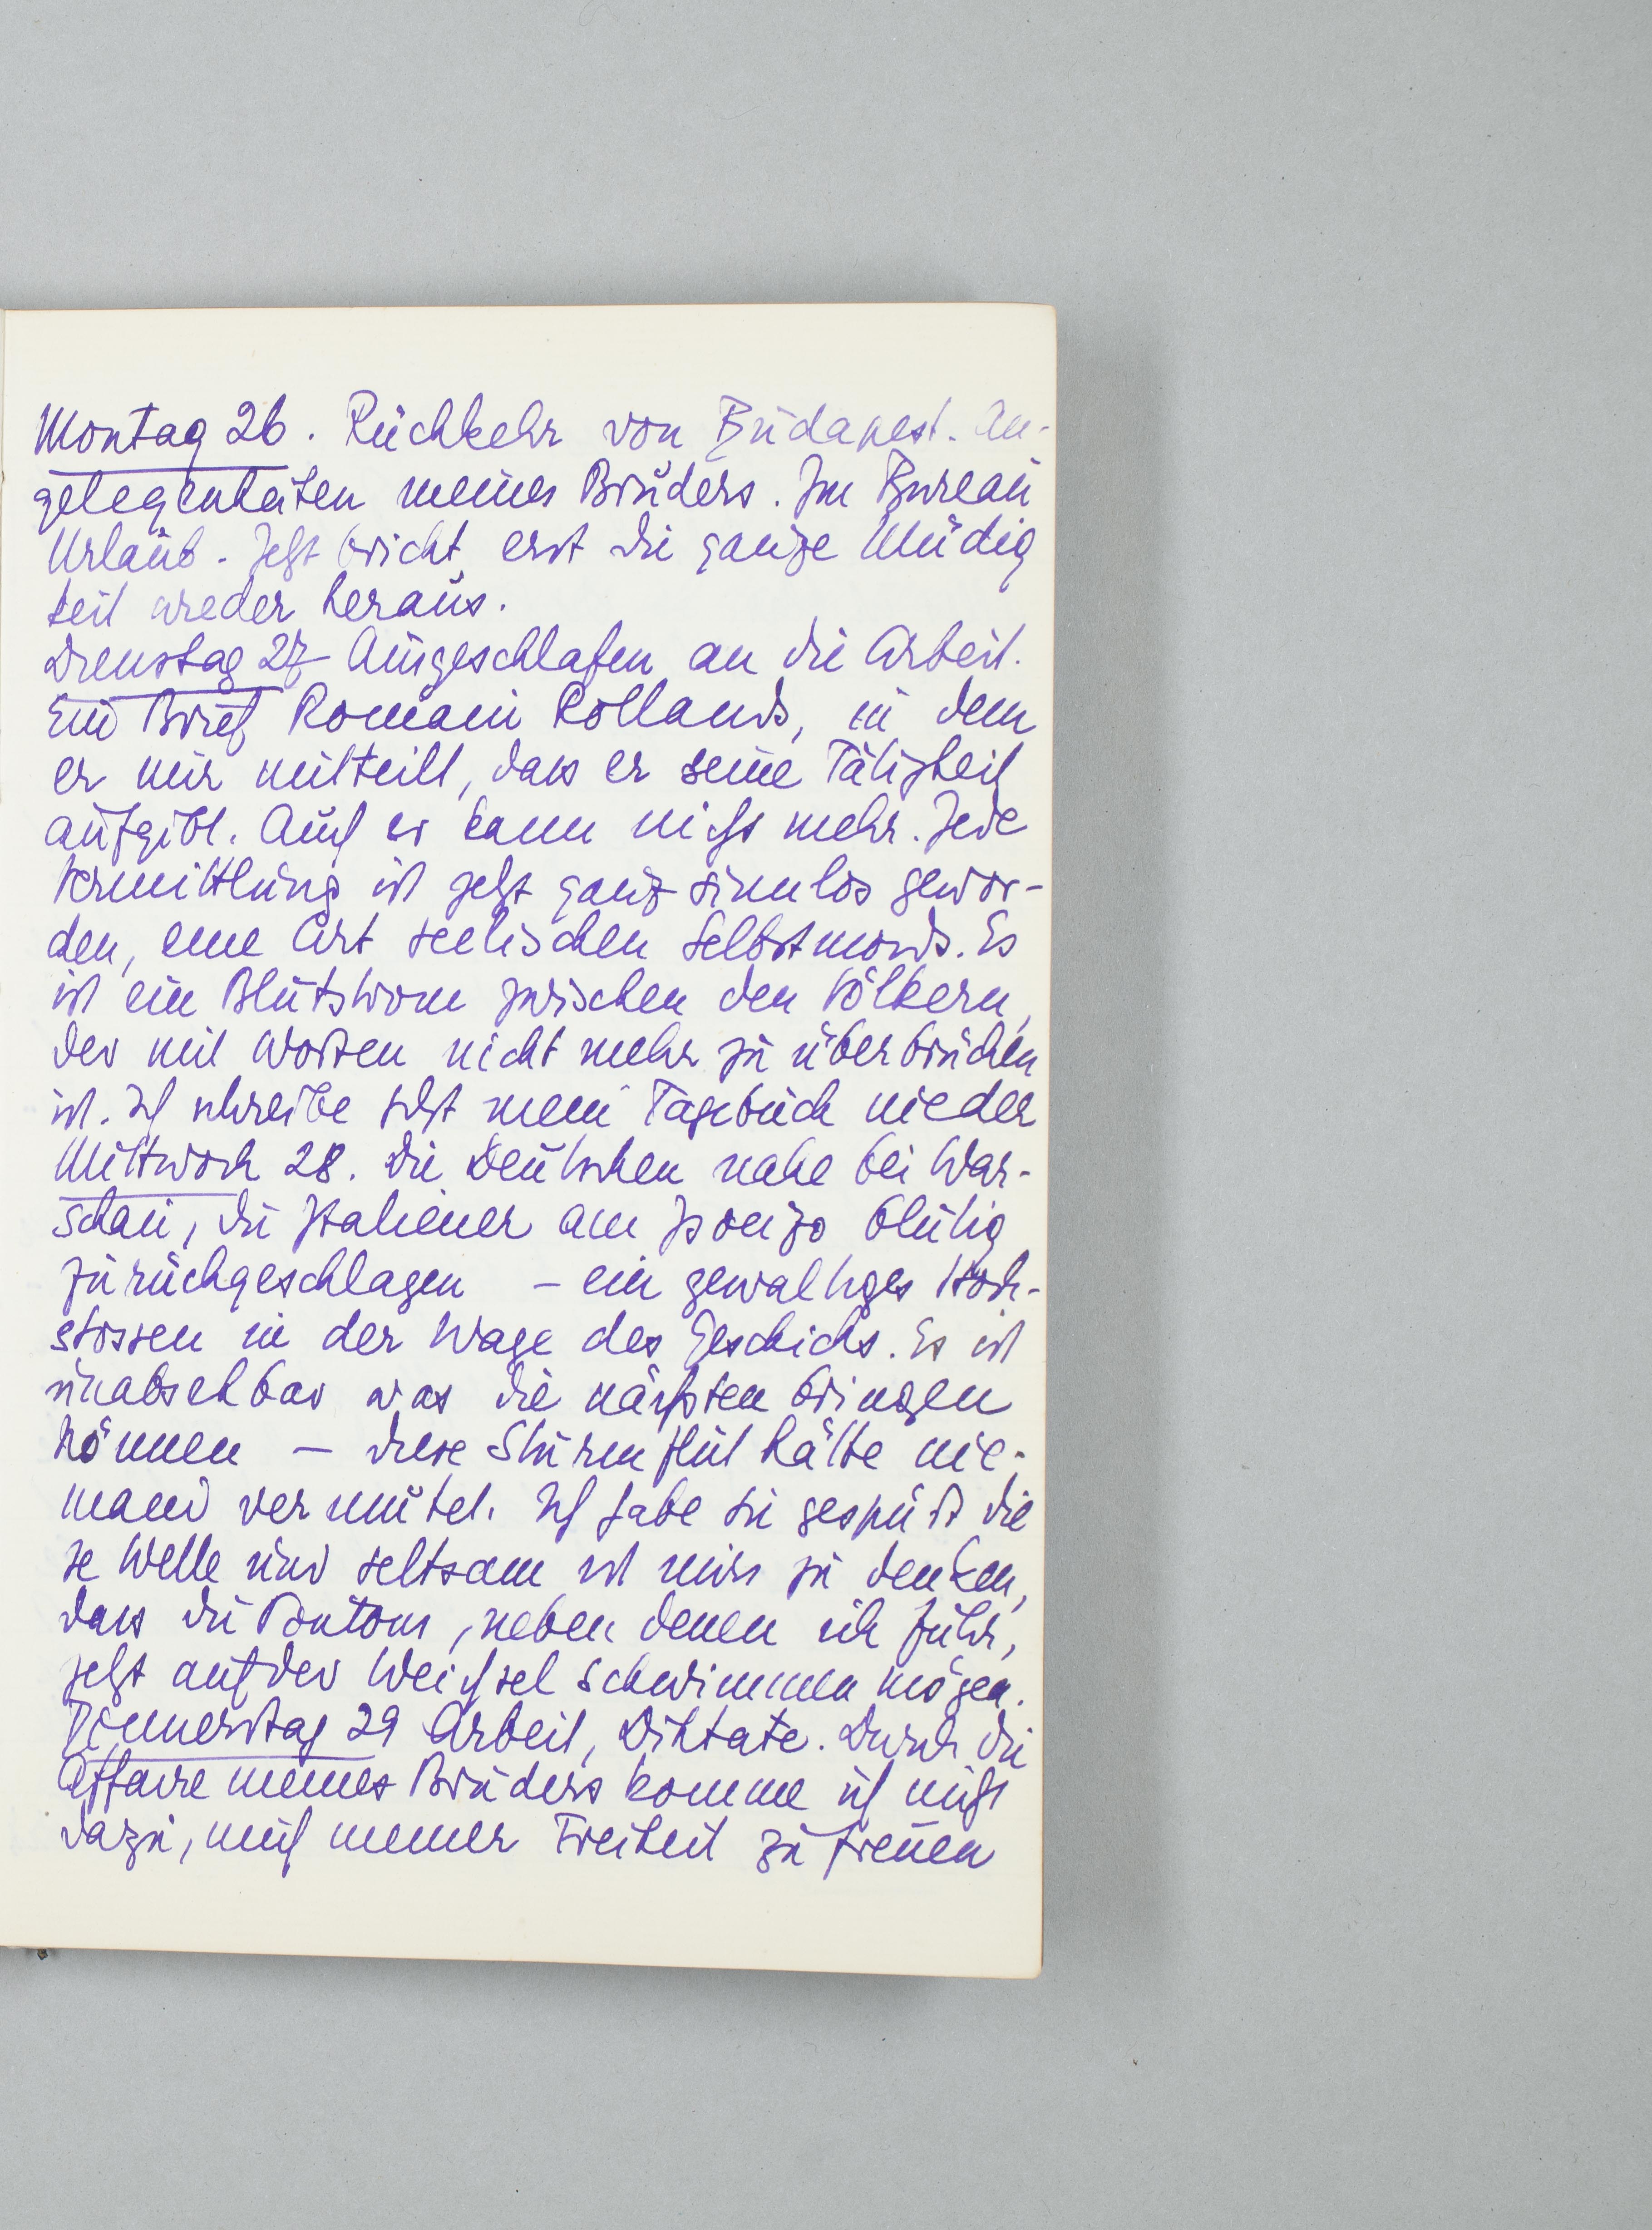 Montag 26. Rückkehr von Budapest. An-
gelegenheiten meines Bruders. Im Bureau
Urlaub. Jetzt bricht erst die ganze Müdig
keit wieder heraus.
Dienstag 27 Ausgeschlafen an die Arbeit.
Ein Brief Romain Rollands, in dem
er mir mitteilt, dass er seine Tätigkeit
aufgibt. Auch er kann nicht mehr. Jede
Vermittlung ist jetzt ganz sinnlos gewor-
den, eine Art seelischen Selbstmords. Es
ist ein Blutstrom zwischen den Völkern,
der mit Worten nicht mehr zu überbrücken
ist. Ich schreibe jetzt mein Tagebuch nieder
Mittwoch 28. Die Deutschen nahe bei War-
schau, die Italiener am Isonzo blutig
zurückgeschlagen – ein gewaltiges Hoch-
stossen in der Wage des Geschicks. Es ist
unabsehbar was die nächsten bringen
können – diese Sturmflut hätte nie-
mand vermutet. Ich habe sie gespürt die
se Welle und seltsam ist mirs zu denken,
dass die Pontons, neben denen ich fuhr,
jetzt auf der Weichsel schwimmen mögen.
Donnerstag 29 Arbeit, Diktate. Durch die
Affaire meines Bruders komme ich nicht
dazu, mich meiner Freiheit zu freuen